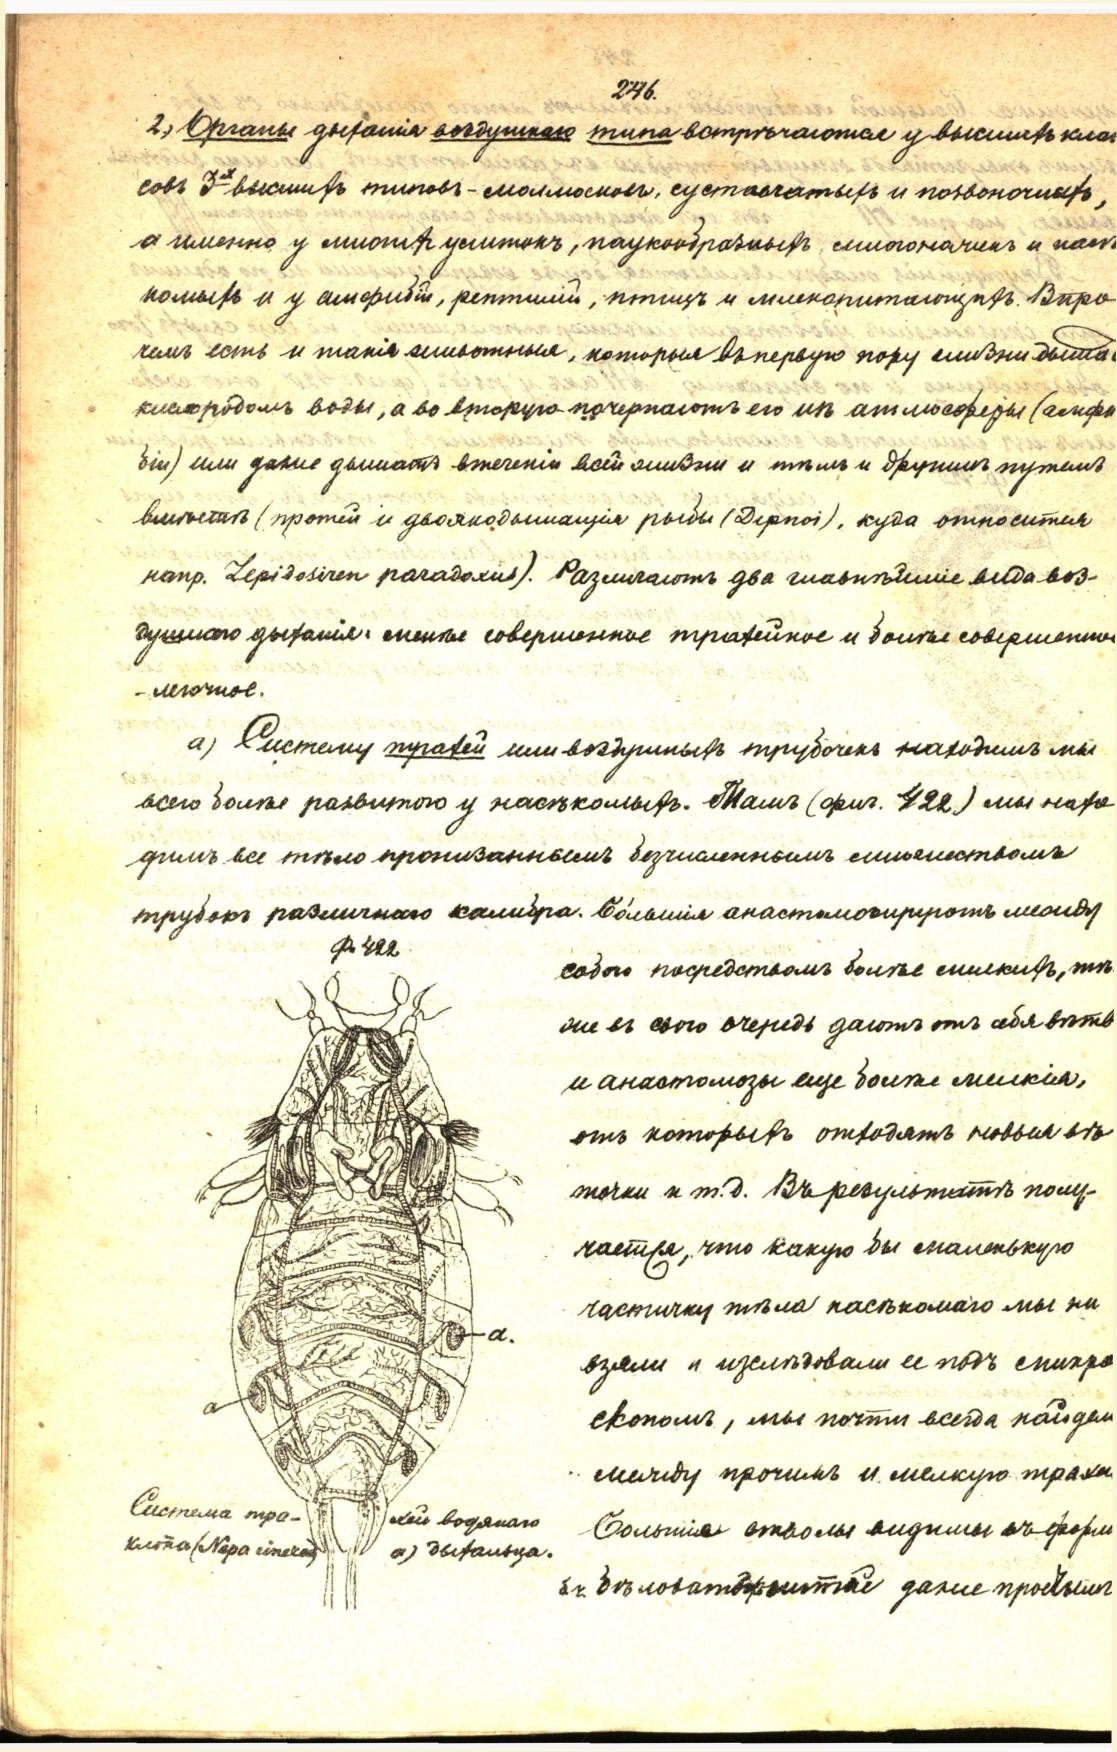 246.
2) Органы дыханія воздушнаго типа встрѣчаются у высшихъ клас
совъ 3-х высшихъ типовъ - моллюсковъ, суставчатыхъ и позвоночныхъ,
а именно у многихъ улитокъ, паукообразныхъ, многоножекъ и насѣ
комыхъ и у амфибій, рептилій, птицъ и млекопитающихъ. Впро
чемъ есть и такія животныя, которыя въ первую пору жизни дыша
кислородомъ воды, а во вторую почерпаютъ его изъ атмосферы (амфи
біи) или даже дышатъ втеченіи всей жизни и тѣмъ и другимъ путемъ
вмѣстѣ (протей и двоякодышащія рыбы (Dipnoi), куда относится
напр. Lepidosiren paradoxus). Различаютъ два главнѣйшіе вида воз-
душнаго дыханія: менѣе совершенное трахейное и болѣе совершенное
- легочное.
а) Систему трахей или воздушныхъ трубочекъ находимъ мы
всего болѣе развитою у насѣкомыхъ. Тамъ (фиг. 422) мы нахо
димъ все тѣло пронизаннымъ безчисленнымъ множествомъ
трубокъ различнаго калибра. Большія анастомозируютъ между
Ф. 422
собою посредствомъ болѣе мелкихъ, тѣ
же въ свою очередь даютъ отъ себя вѣтви
и анастомозы еще болѣе мелкія,
отъ которыхъ отходятъ новыя вѣ
точки и т.д. Въ результатѣ полу-
чается, что какую бы маленькую
частичку тѣла насѣкомаго мы ни
взяли и изслѣдовали ее подъ микро
скопомъ, мы почти всегда найдем
между прочимъ и мелкую трахе
Большія стволы видимы въ форм
бѣловатыхъ даже простымъ
а.
а
Система тра-
хей водянаго
клопа (Nepa cinerea)
а) дыхальца.